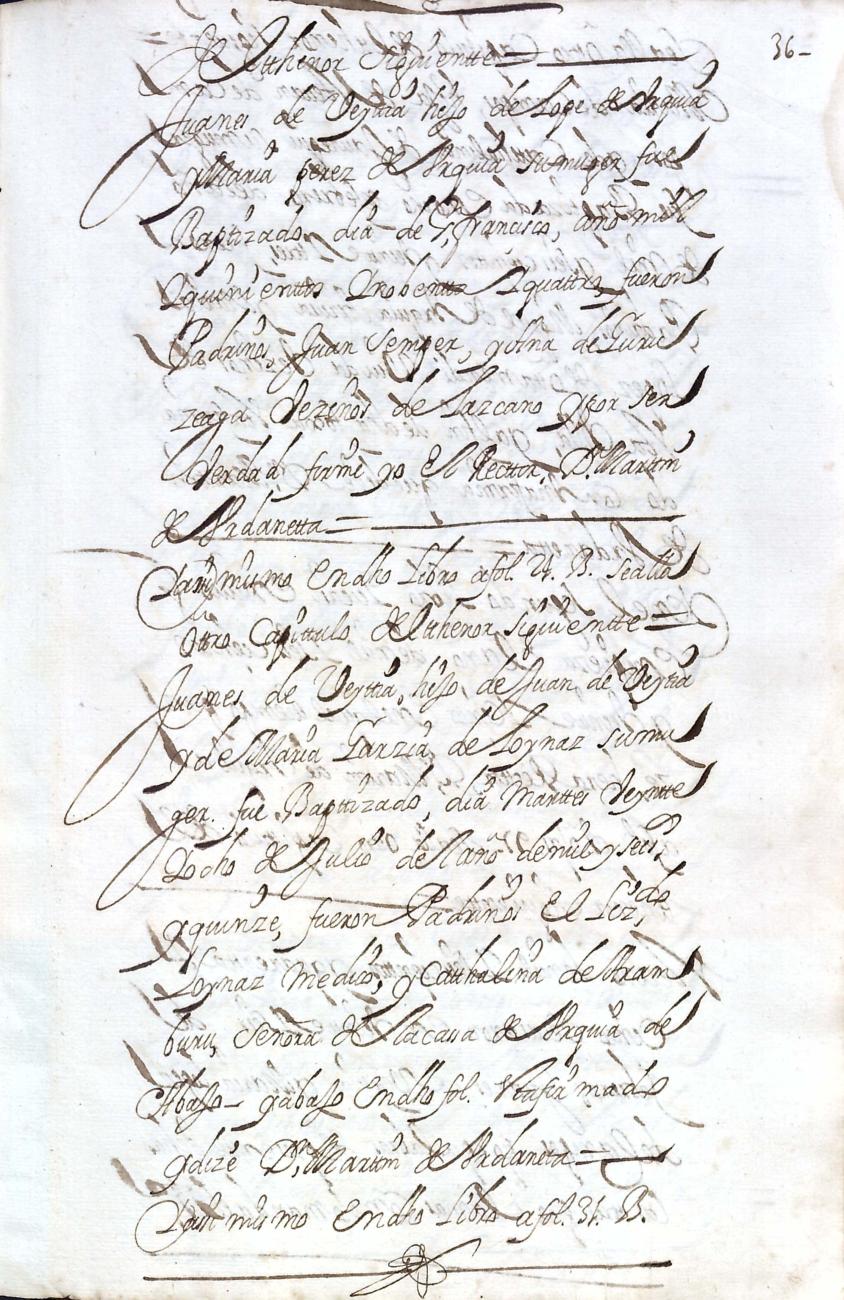 36-
del tthenor siguientte =
Juanes de Veytia hijo de Lope de Vrquia
y Maria perez de Vrquia su muger fue
Baptizado, dia de S. francisco, año mill
y quini enttos y nobentta y quattro, fueron
Padrinos, Juan Semper, y otña de Yuric
zeaga Vezinos de Lazcano y por ser
Verdad firme yo el Rector, D. Martin
de Vrdanetta =
Y asi mismo en dho Libro a fol. 24. B. se alla
ottro Capittulo del tthenor siguientte =
Juanes de Veytia, hijo, de Juan de Veytia
y de Maria Garzia de Loynaz su mu
ger. fue Bapttizado, dia Marttes Veyntte
y ocho de Julio del año de mil y seis,
y quinze, fueron Padrinos el Liz.do
Loynaz Medico, y Catthalina de Aram
buru, señora de la cassa de Vrquia de
Abajo - y abajo en dho fol. esta firmado
y dize D. Martin de Vrdaneta =
Y asi mismo en dho Libro a fol. 31. B.